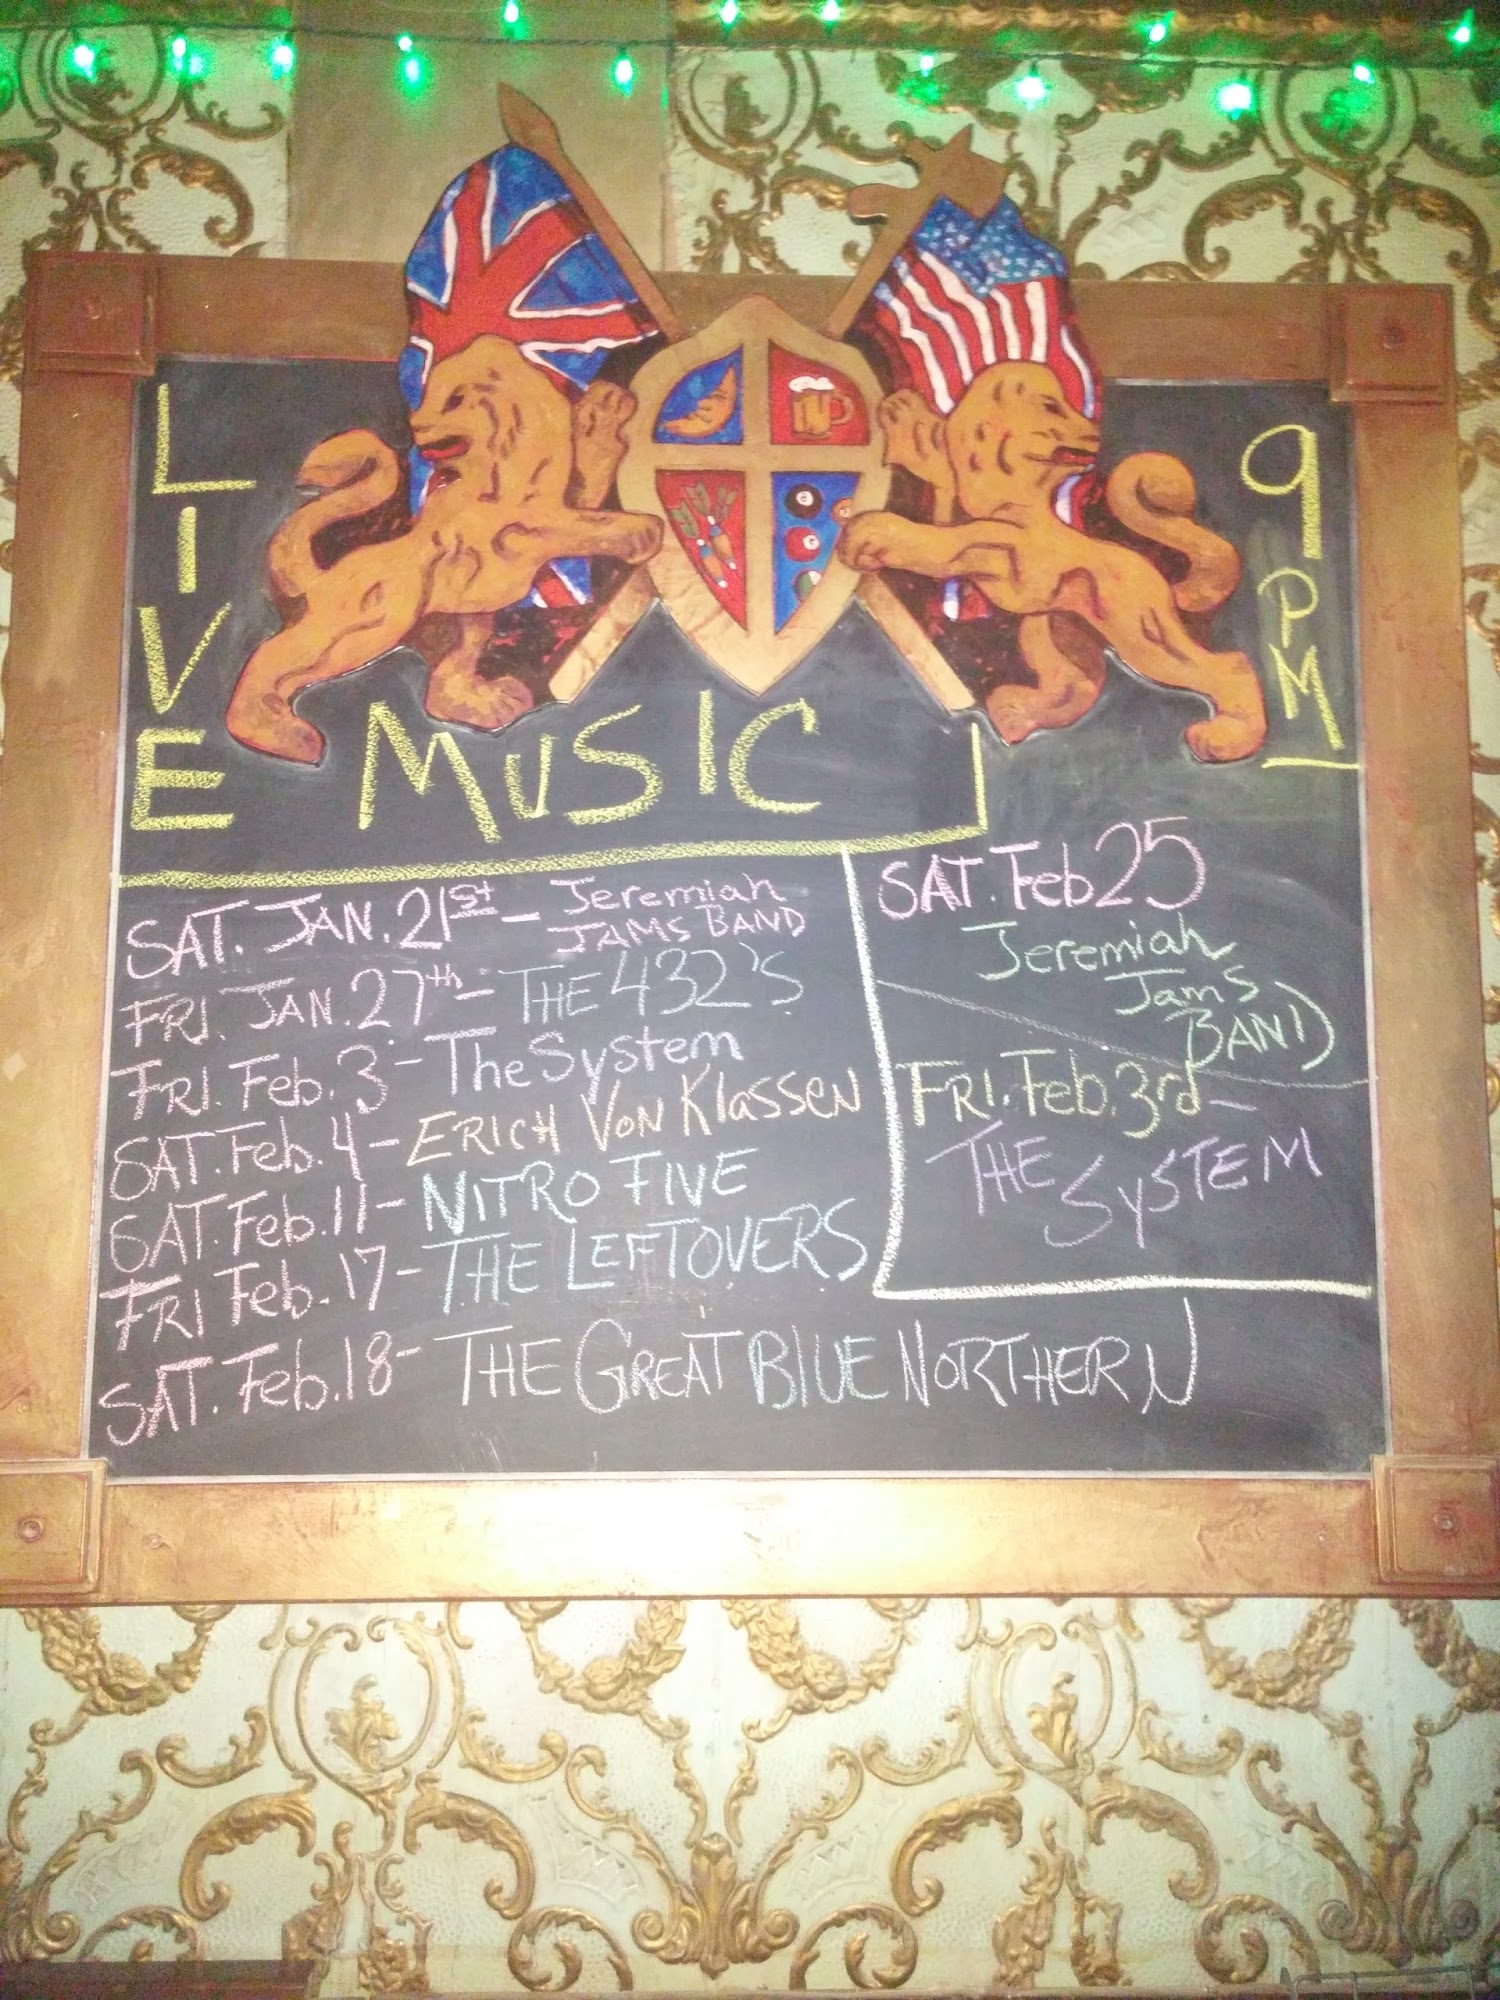 LIVE MUSIC
9 PM
SAT. JAN. 21st - Jeremiah
JAMS BAND
FRI. JAN. 27th - THE 432'S
FRI. Feb. 3 - The System
SAT. Feb. 4 - ERICH VON KlASSEN
SAT. Feb. 11 - NITRO FIVE
FRI Feb. 17 - THE LEFTOVERS
SAT. Feb. 18 - THE GREAT BlUE NORTHERN
SAT. Feb 25
Jeremiah
Jam's
BAND
FRI. Feb. 3rd -
THE
SySTEM